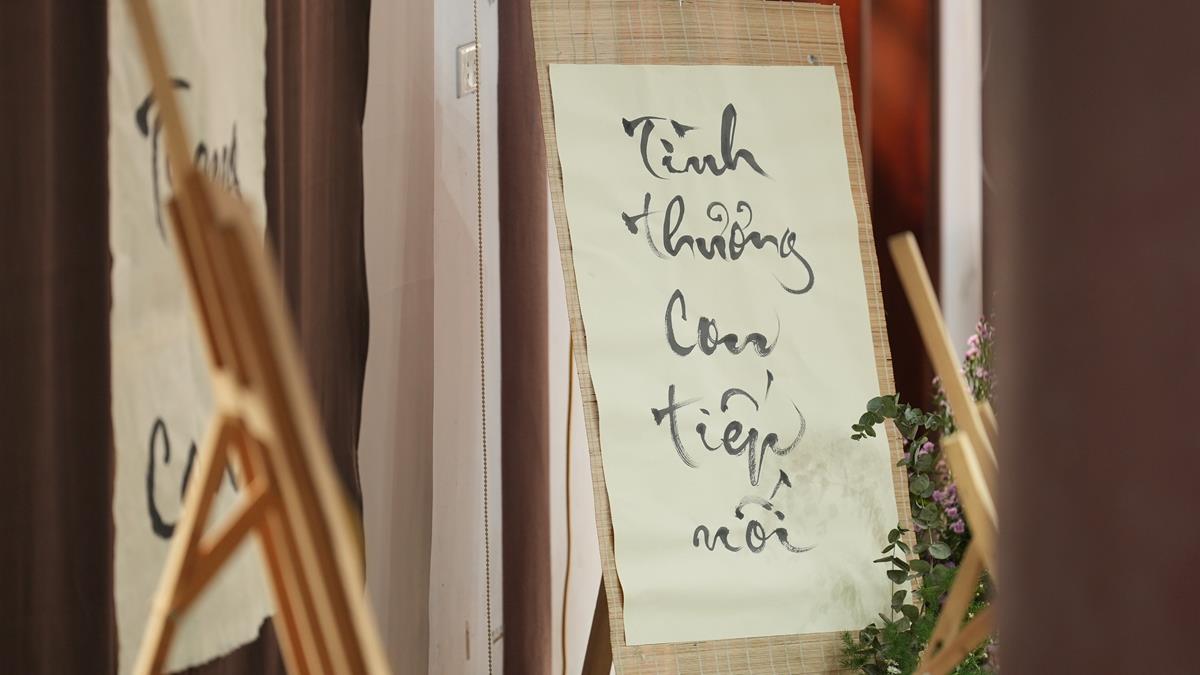 Tình
thương
Con
tiếp
nối